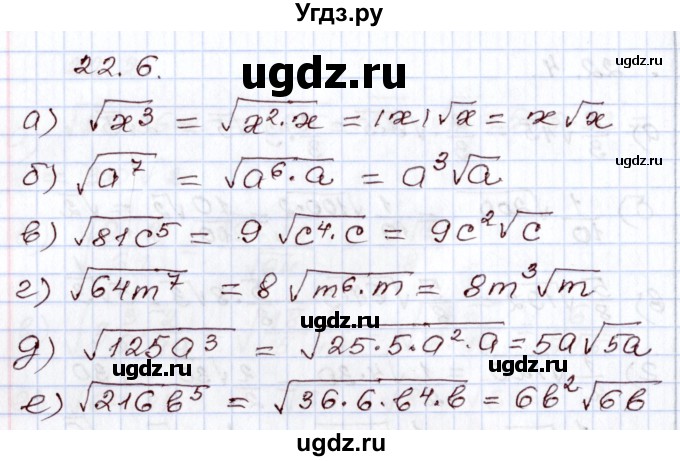 Угдз.ру
22.6.
ugdz.ru
ugdz.ru
а) √x³ = √x²·x = |x|√x = x√x
б) √a⁷ = √a⁶·a = a³√a
ugdz.ru
в) √81c⁵ = 9√c⁴·c = 9c²√c
г) √64m⁷ = 8√m⁶·m = 8m³√m
ugdz.ru
д) √125a³ = √25·5·a²·a = 5a√5a
ugdz.ru
ugdz.ru
е) √216b⁵ = √36·6·b⁴·b = 6b²√6b
ugdz.ru